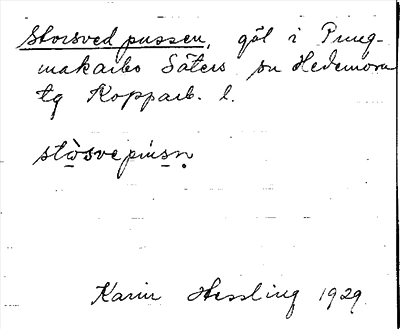 Storsvedpussen, göl i Pung-
makarbo Säters sn Hedemora
tg Kopparb. l.
stòsvepusn
Karin Hessling 1929.